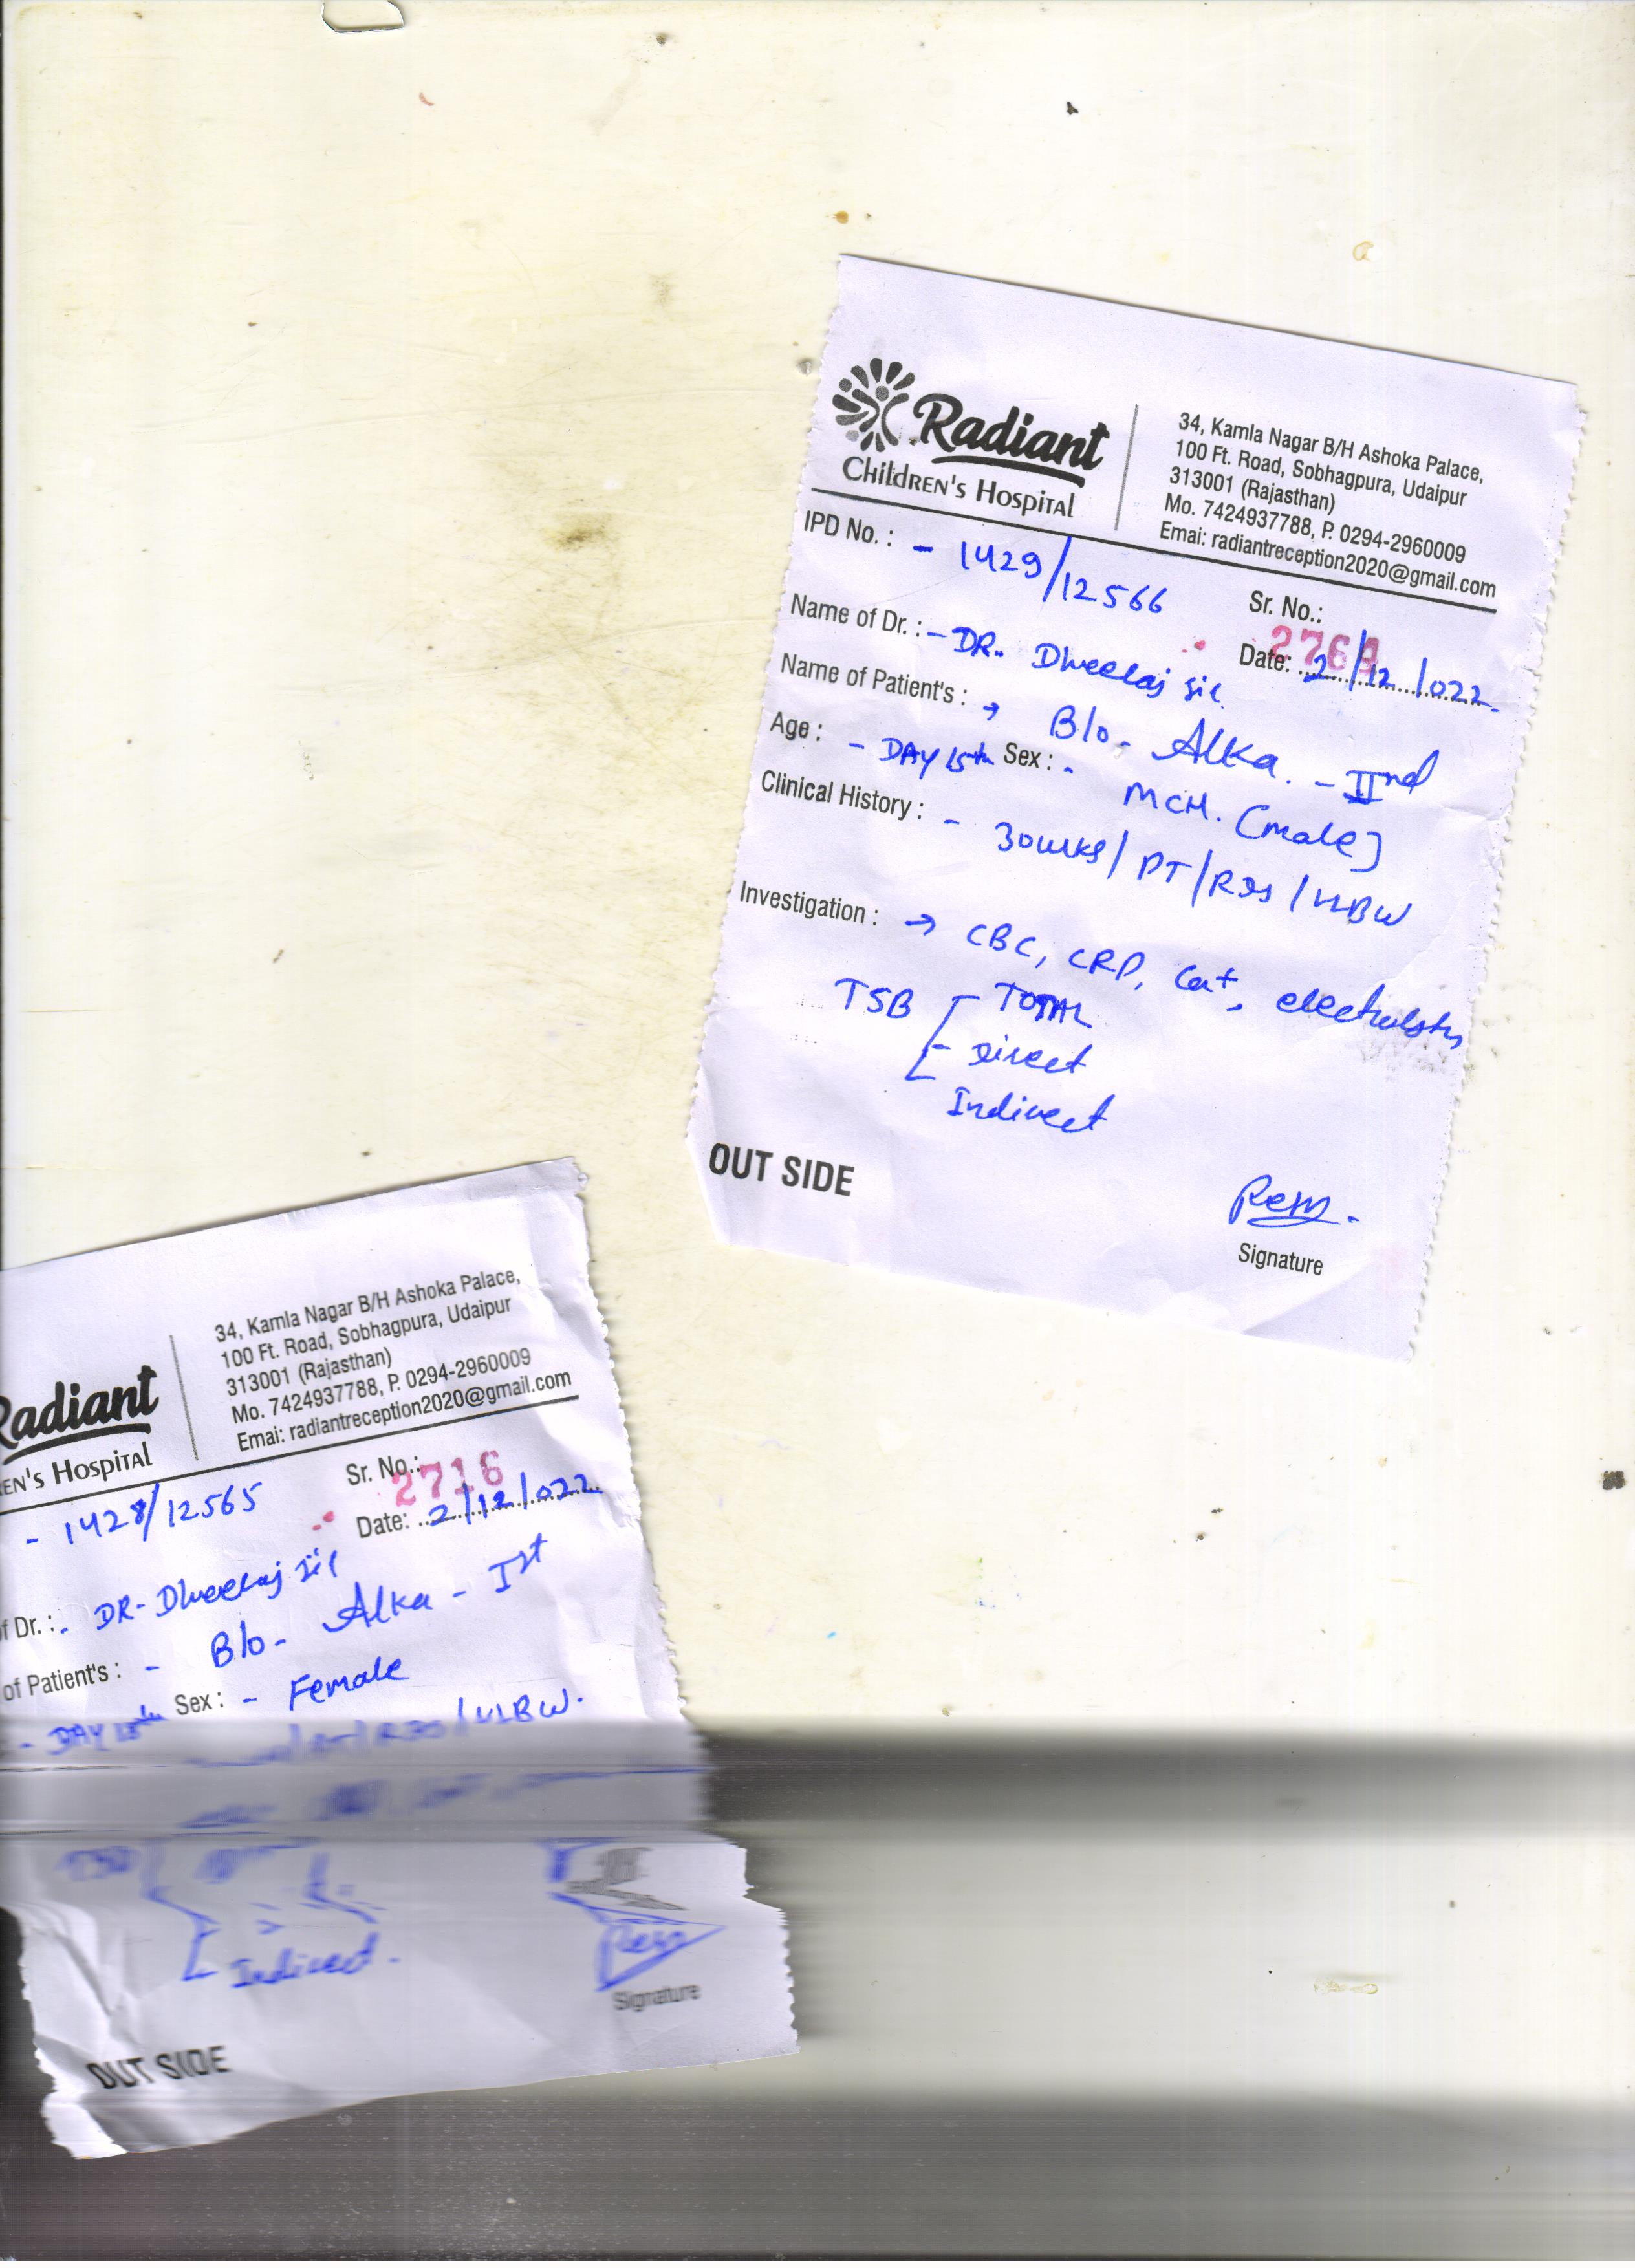 Radiant
Children's Hospital
34, Kamla Nagar B/H Ashoka Palace,
100 Ft. Road, Sobhagpura, Udaipur
313001 (Rajasthan)
Mo. 7424937788, P. 0294-2960009
Emai: radiantreception2020@gmail.com
IPD No. : - 1429/12566
Sr. No.:
Name of Dr. : - DR. Dheeraj
Date: 2/12/022
Name of Patient's : → B/o - Alka. - IInd
Age : - DAY 15th Sex : - MCH. (male)
Clinical History : - 30wks/ PT/RDS/VLBW
Investigation : → CBC, CRP, Ca+, electrolytes
TSB - TOTAL
- Direct
Indirect
OUT SIDE
Signature
Radiant
EN's Hospital
34, Kamla Nagar B/H Ashoka Palace,
100 Ft. Road, Sobhagpura, Udaipur
313001 (Rajasthan)
Mo. 7424937788, P. 0294-2960009
Emai: radiantreception2020@gmail.com
- 1428/12565
Sr. No.: 2716
Date: 2/12/022
f Dr. : - DR- Dheeraj
of Patient's : - B/o - Alka - Ist
- DAY Sex : - Female
/RDS/VLBW.
Indirect.
Signature
OUT SIDE